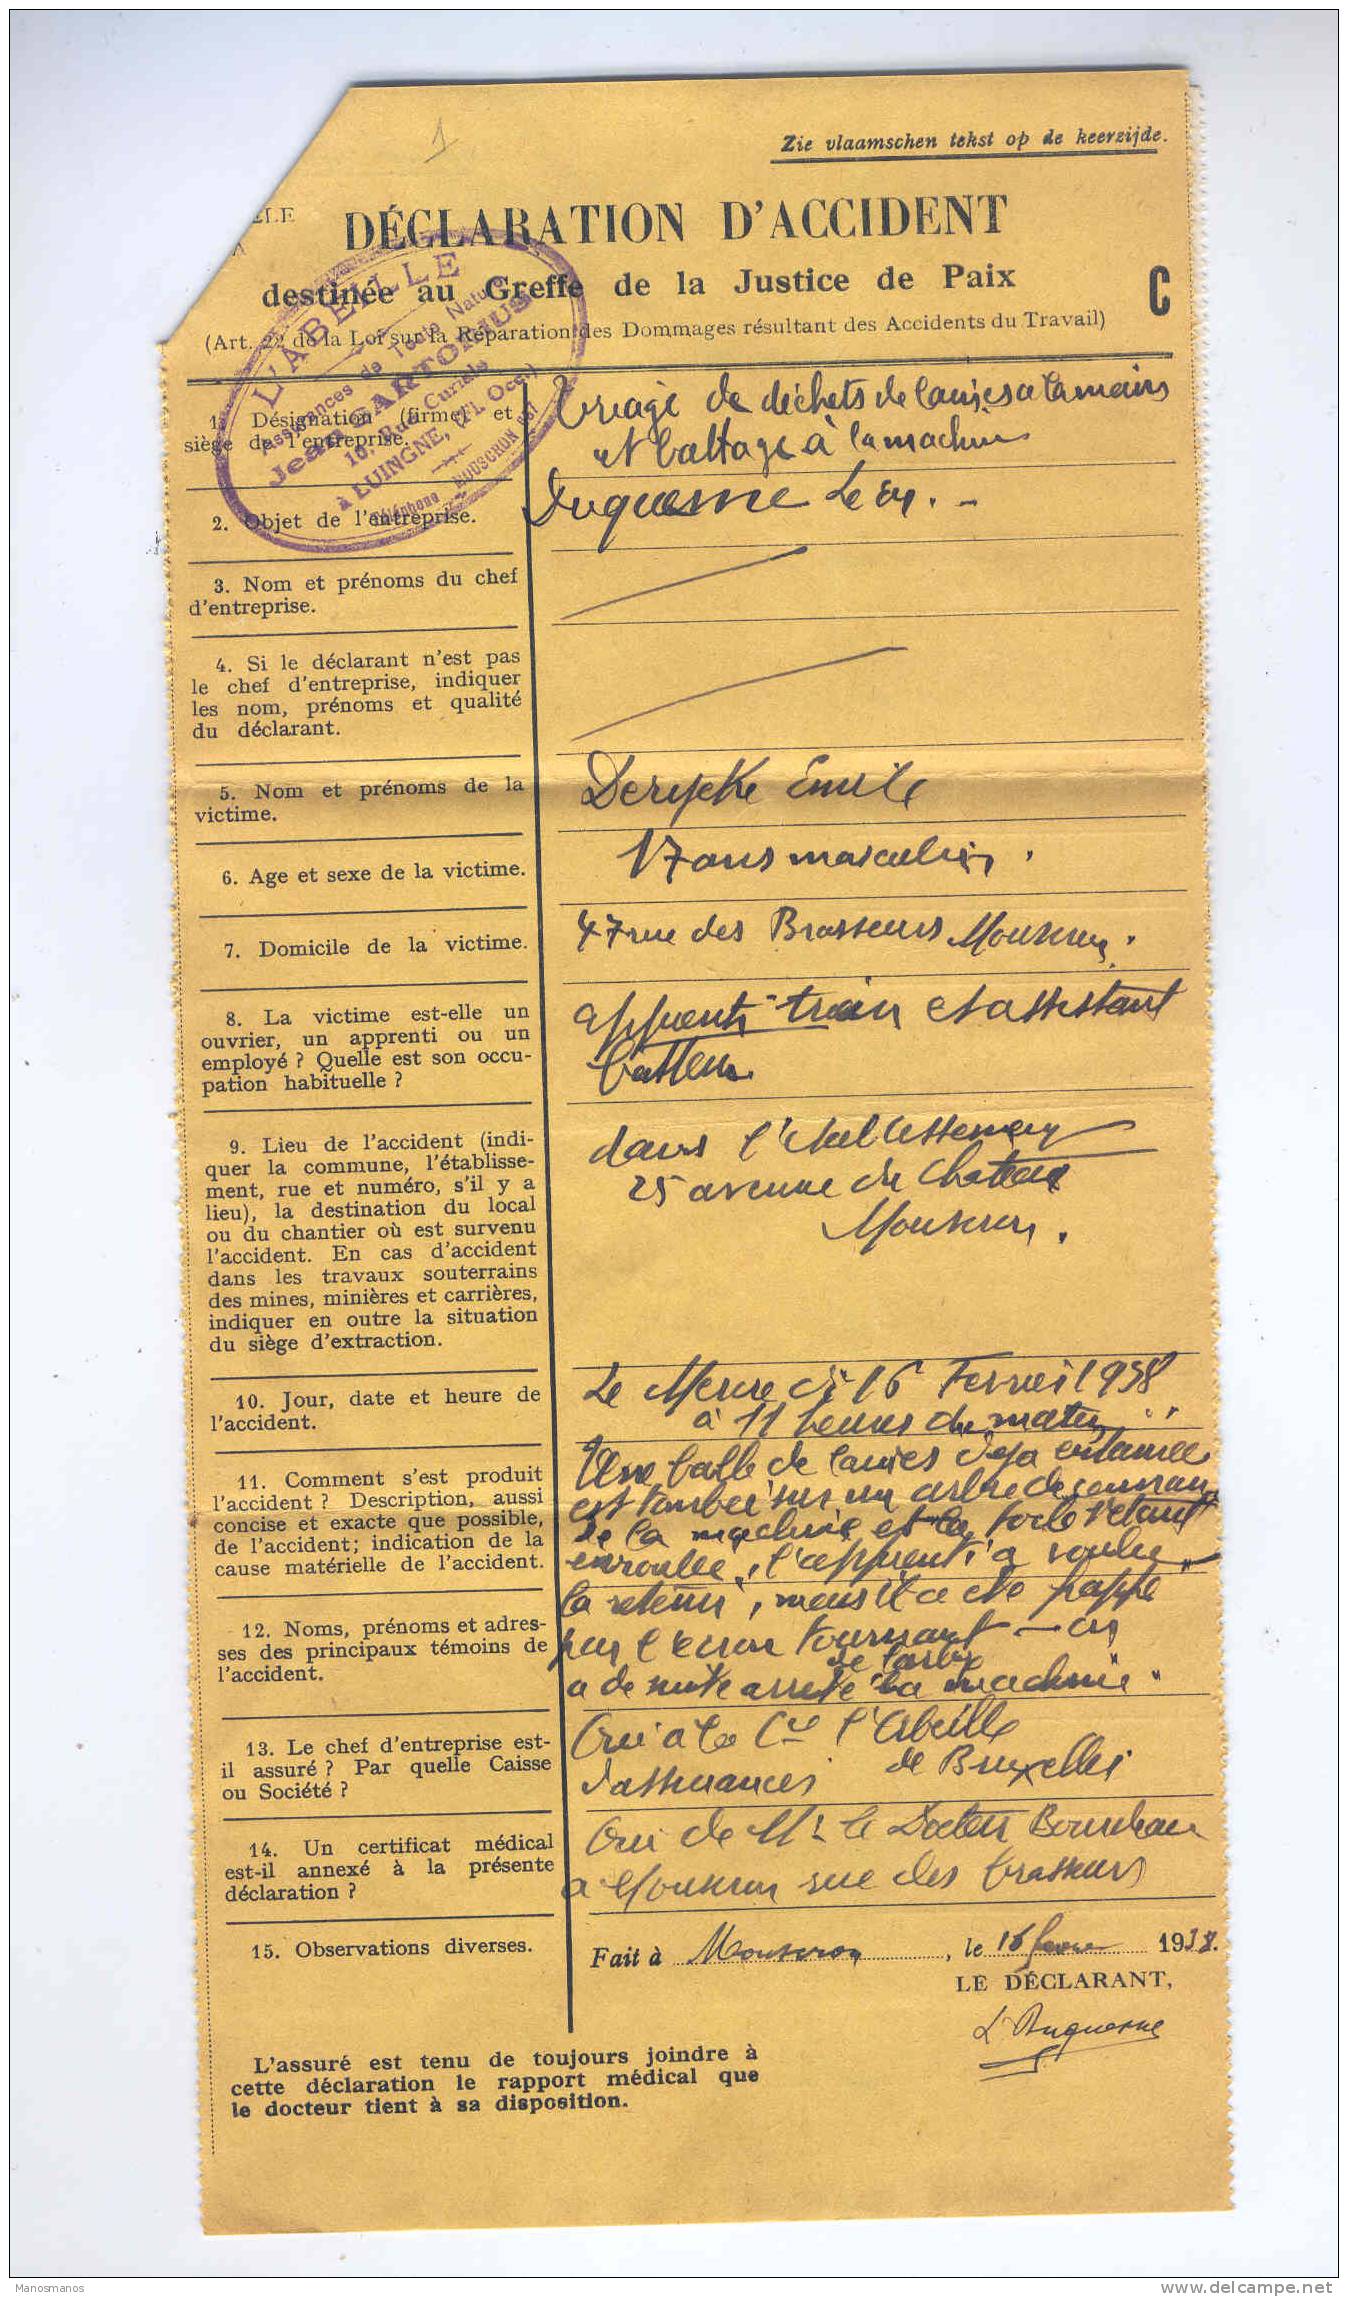 1
Zie vlaamschen tekst op de keerzijde.
DÉCLARATION D'ACCIDENT
destinée au Greffe de la Justice de Paix
C
(Art. 22 de la Loi sur la Réparation des Dommages résultant des Accidents du Travail)
L'ABEILLE
Assurances de Toute Nature
Jean SARTORIUS
10, Rue Curiale
à LUINGNE, (Fl. Occ.)
Téléphone MOUSCRON
1. Désignation (firme) et
siège de l'entreprise.
Triage de déchets de laines à la mains
et battage à la machine
2. Objet de l'entreprise.
Duquesne Léon. -
3. Nom et prénoms du chef
d'entreprise.
4. Si le déclarant n'est pas
le chef d'entreprise, indiquer
les nom, prénoms et qualité
du déclarant.
5. Nom et prénoms de la
victime.
Derycke Emile
6. Age et sexe de la victime.
17 ans masculin.
7. Domicile de la victime.
47 rue des Brasseurs Mouscron.
8. La victime est-elle un
ouvrier, un apprenti ou un
employé ? Quelle est son occu-
pation habituelle ?
apprenti et assistant
batteur
9. Lieu de l'accident (indi-
quer la commune, l'établisse-
ment, rue et numéro, s'il y a
lieu), la destination du local
ou du chantier où est survenu
l'accident. En cas d'accident
dans les travaux souterrains
des mines, minières et carrières,
indiquer en outre la situation
du siège d'extraction.
dans l'établissement
25 avenue du Chateau
Mouscron.
10. Jour, date et heure de
l'accident.
Le Mercredi 16 Fevrier 1938
à 11 heures du matin
11. Comment s'est produit
l'accident ? Description, aussi
concise et exacte que possible,
de l'accident; indication de la
cause matérielle de l'accident.
Une balle de laines deja entamée
est tombée sur un arbre de
de la machine et la toile s'étant
enroulée, l'apprenti a voulu
12. Noms, prénoms et adres-
ses des principaux témoins de
l'accident.
la retenir, mais il a été frappé
par l'ecrou tournant – on
de l'arbre
a de suite arrété la machine.
13. Le chef d'entreprise est-
il assuré ? Par quelle Caisse
ou Société ?
Oui à la Cie l'Abeille
d'assurances de Bruxelles
14. Un certificat médical
est-il annexé à la présente
déclaration ?
Oui de Mr le Docteur
a Mouscron rue des brasseurs
15. Observations diverses.
Fait à Mouscron, le 16 fevrier 1938.
LE DÉCLARANT,
L Duquesne
L'assuré est tenu de toujours joindre à
cette déclaration le rapport médical que
le docteur tient à sa disposition.
Manosmanos
www.delcampe.net